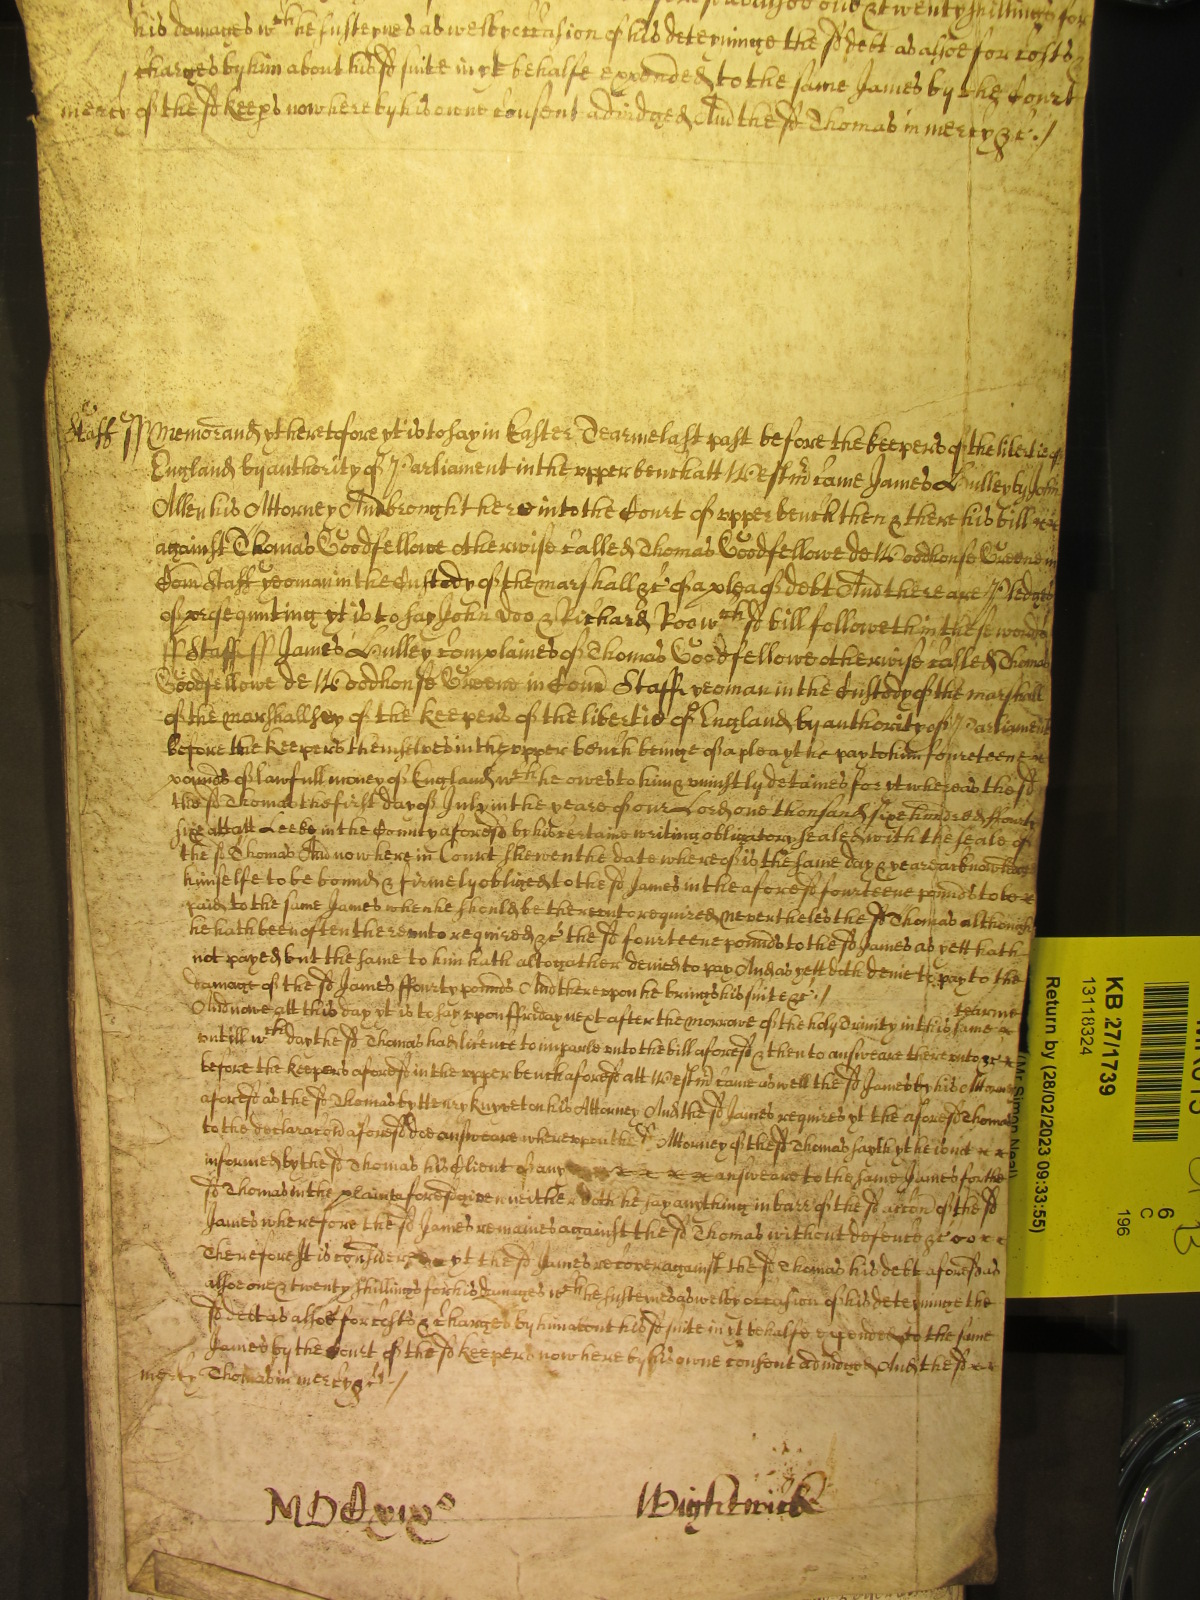 one & twenty shillings for
his damages wch he susteynes aswell by occasion of his deteyninge the sd debt as alsoe for costs &
charges by him about his sd suite in yt behalfe expended to the same James by the Court
mercy of the sd keepers now here by his owne consent adiudged And the sd Thomas in mercy &c ./
Staff ss Memorand yt heretofore yt is to say in Easter Tearme last past before the keepers of the libertie of
England by authority of Parliament in the vpper bench att Westmr came James Hulley by John
Allen his Attorney And brought here into the Court of vpper bench then & there his bill
against Thomas Goodfellowe otherwise called Thomas Goodfellowe de Woodhouse Greene in
Com Staff yeoman in the Custody of the marshall &c of a plea of debt And there are Pledges
of prsequuting yt is to say John Doo & Richard Roo wch sd bill followeth in these words
ss Staff ss James Hulley complaines of Thomas Goodfellowe otherwise called Thomas
Goodfellowe de Woodhouse Greene in Com Staff yeoman in the Custody of the marshall
of the marshallsey of the keepers of the libertie of England by authority of Parliament
before the keepers themselves in the vpper bench beinge of a plea yt he pay to him fourteene
pounds of lawfull money of England wch he owes to him & vniustly detaines for yt whereas the sd
the sd Thomas the first day of July in the yeare of our Lord one thousand sixe hundred ffourty
sixe att Leeke in the County aforesd by his certaine writing obligatory sealed with the seale of
the sd Thomas And now here in Court shewen the date whereof is the same day & yeare acknowledged
himselfe to be bound & firmely obliged to the sd James in the aforesd fourteene pounds to be
paid to the same James when he should be therevnto required neverthelesse the sd Thomas although
he hath been often therevnto required &c the sd fourteene pounds to the sd James as yett hath
not payed but the same to him hath altogather denied to pay And as yett doth denie to pay to the
damage of the sd James ffourty pounds And therevpon he brings his suite &c ./
And now att this day yt is to say vpon ffriday next after the morrowe of the holy Trinity in this same tearme
vntill wch day the sd Thomas had licence to imparle vnto the bill aforesd & then to answeare therevnto &c
before the keepers aforesd in the vpper bench aforesd att Westmr came aswell the sd James by his Attorney
aforesd as the sd Thomas by Henry his Attorney And the sd James requires yt the aforesd Thomas
to the declaracon aforesd doe answeare wherevpon the sd Attorney of the sd Thomas sayth yt he is not
informed by the sd Thomas his Client of any answeare to the same James for the
sd Thomas in the plaint aforesd given neither doth he say any thing in barr of the sd accon of the sd
James wherefore the sd James remaines against the sd Thomas without defence &c
Therefore It is considered yt the sd James recover against the sd Thomas his debt aforesd as
alsoe one & twenty shillings for his damages wch he susteynes aswell by occasion of his deteyninge the
sd debt as alsoe for costs & charges by him about his sd suite in yt behalfe expended to the same
James by the Court of the sd keepers now here by his owne consent adiudged And the sd
mercy Thomas in mercy &c ./
MDCxixo Wightwick
KB 27/1739
13118324
Return by (28/02/2023 09:33:55)
6
C
196